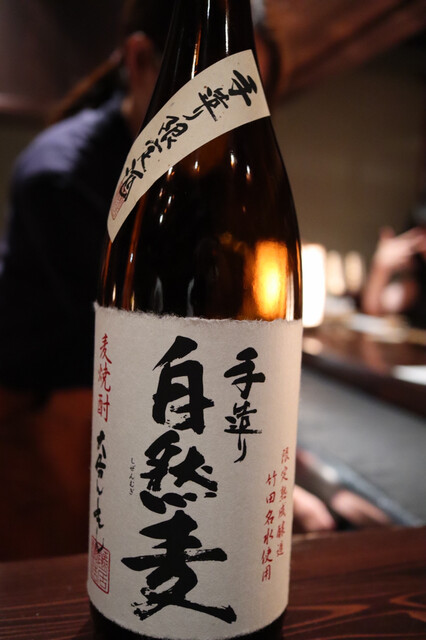 手造り限定酒
限定熟成醸造
竹田名水使用
手造り
自然麦
しぜんむぎ
麦焼酎